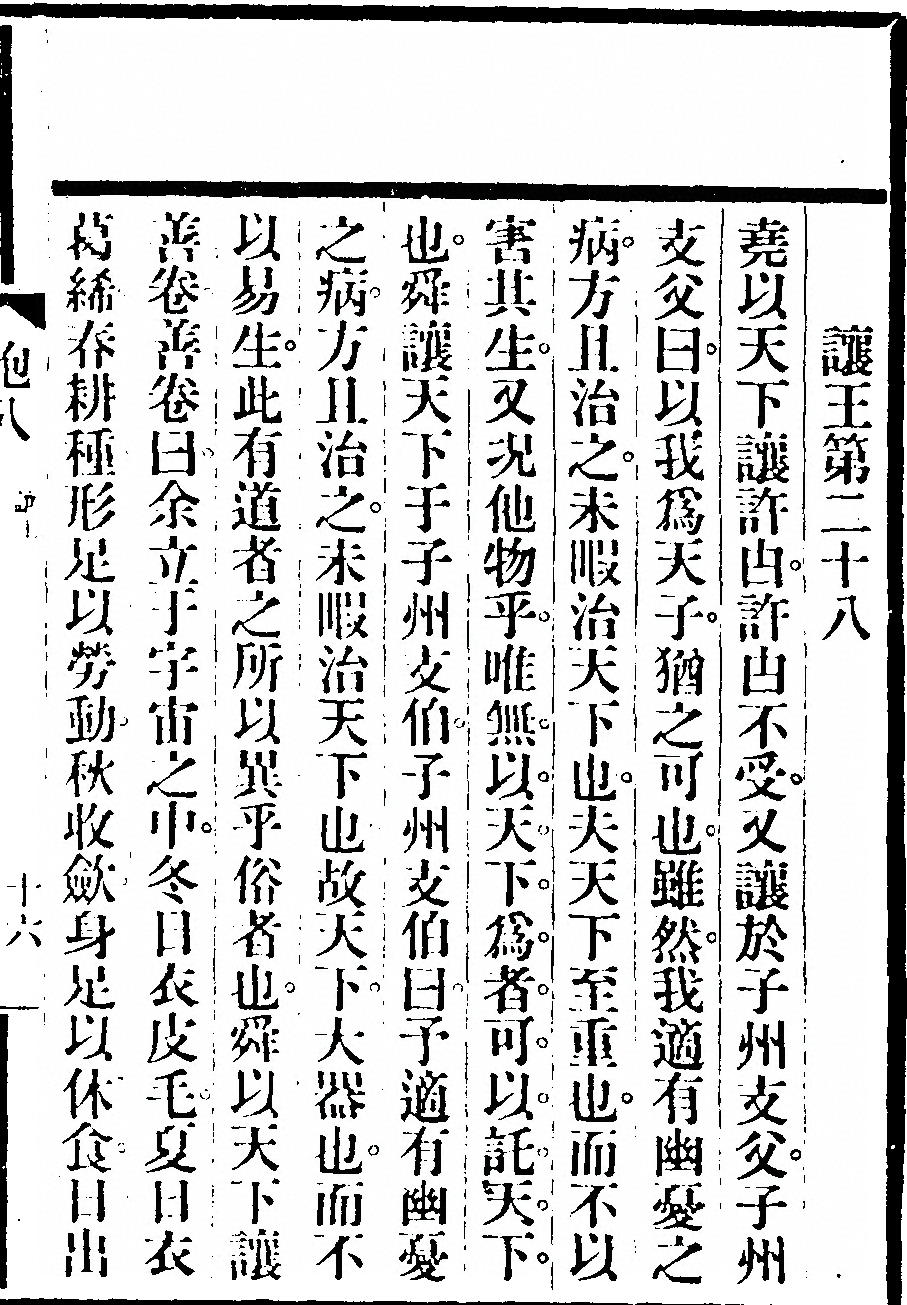 讓王第二十八
堯以天下讓許由。許由不受。又讓於子州支父。子州
支父曰。以我爲天子。猶之可也。雖然。我適有幽憂之
病。方且治之。未暇治天下也。夫天下至重也。而不以
害其生。又況他物乎。唯無。以。天。下。爲。者。可。以。託。天。下。
也。舜讓天下于子州支伯。子州支伯曰。予適有幽憂
之病。方且治之。未暇治天下也故天下。大器也。而不
以易生。此有道者之所以異乎俗者也。舜以天下讓
善卷善卷曰。余立于宇宙之中。冬日衣皮毛。夏日衣
葛絺春耕種形足以勞動。秋收歛。身足以休食。日出
十六